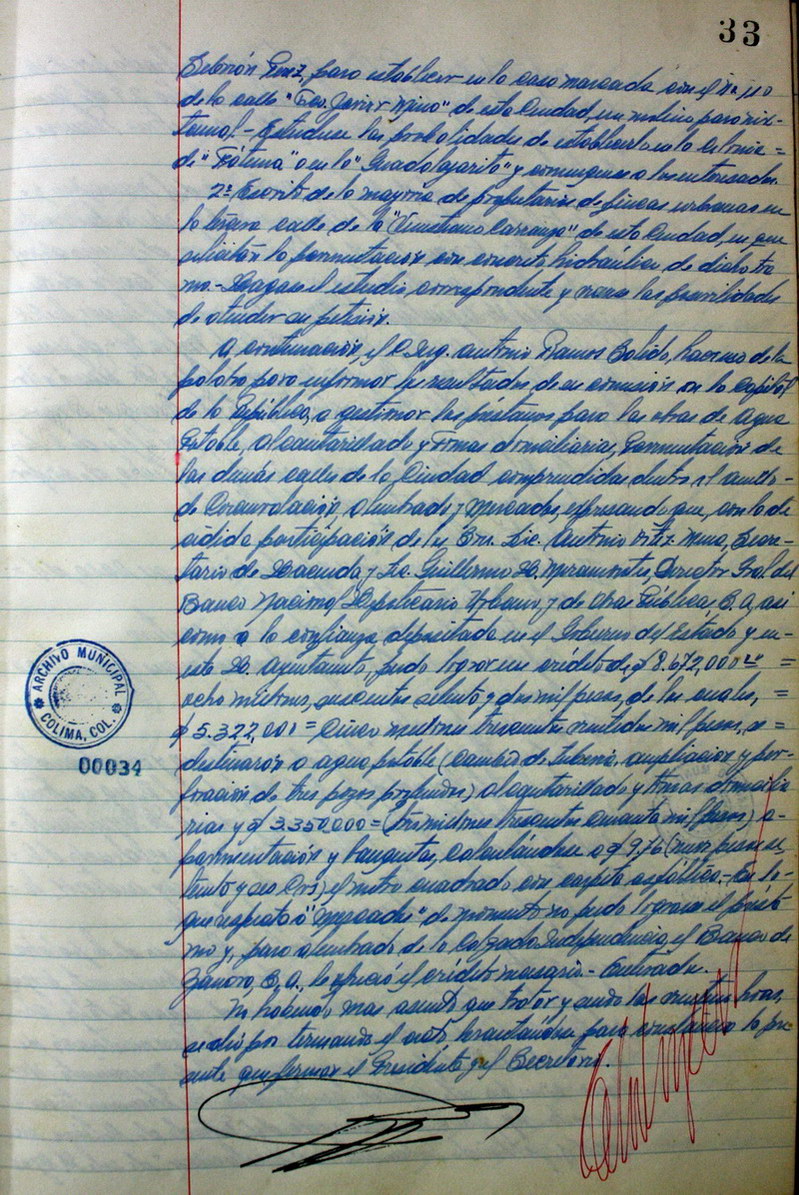 33
para establecer en la casa marcada con el
de la calle "Gral. Javier Mina" de esta Ciudad, un molino para nix-
tamal.- Estúdiese las probalidades de establecerlo en la Colonia =
de "Fátima" o en la "Guadalajarita" y comuníquese a los interesados.
2º Escrito de la mayoría de propietarios de fincas urbanas en
la calle de la "Venustiano Carranza" de esta Ciudad, en que
solicitan la pavimentación con concreto hidráulico de dicho tra
mo.- Hágase el estudio correspondiente y las posivilidades
de atender su petición.
A continuación, el C. Ing. Antonio Ramos Salido, hace uso de la
palabra para informar los resultados de su comisión en la Capital
de la República, a gestionar los préstamos para las obras de Agua
Potable, Alcantarillado y Tomas domiciliaria, Pavimentación de
las demás calles de la Ciudad comprendidas dentro el anillo-
de Circunvalación, Alumbrado y Mercados, expresando que, con la de
cidida participación de los Sres. Lic. Antonio Ortiz Mena, Secre-
tario de Hacienda y Lic. Guillermo H. Director Gral. del
Banco Nacional Hipotecario Urbano y de Obras Públicas, S. A, así
como a la confianza depositada en el Gobierno del Estado y en-
este H. Ayuntamiento, pudo lograr un crédito de $8.672,000.00 =
ocho millones, seiscientos setenta y dos mil pesos, de los cuales, =
$5.322,000 = Cinco millones trescientos veintidos mil pesos, se =
destinarán a agua potable (cambio de tubería, ampliación y per-
foración de tres pozos profundos) alcantarillado y tomas domicilia
rias y $3.350,000 = (tres millones trescientos cincuenta mil pesos) a-
pavimentación y banquetas, calculándose a $9.76 (nueve pesos se
tenta y seis Cvs) el metro cuadrado con carpeta asfáltica.- En lo-
que respecta a "Mercados" de momento no pudo lograrse el présta
mo y, para alumbrado de la Calzada Independencia, el Banco de
Zamora, S. A., le ofreció el crédito necesario.- Enterados.
No habiendo mas asunto que tratar y siendo las veintiún horas,
se dió por terminado el acto levantándose para constancia la pre
sente que firman el Presidente y el Secretario.
ARCHIVO MUNICIPAL
COLIMA, COL.
00034